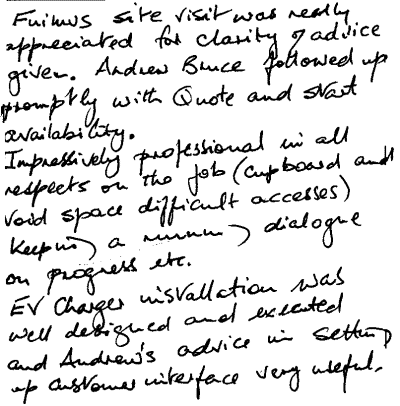 site visit was really
appreciated for clarity of advice
given. Andrew Bruce followed up
promptly with Quote and start
availability.
Impressively professional in all
respects on the job (cupboard and
void space difficult accesses)
Keeping a running dialogue
on progress etc.
EV Charger installation was
well designed and executed
and Andrew's advice in setting
up customer interface very useful.